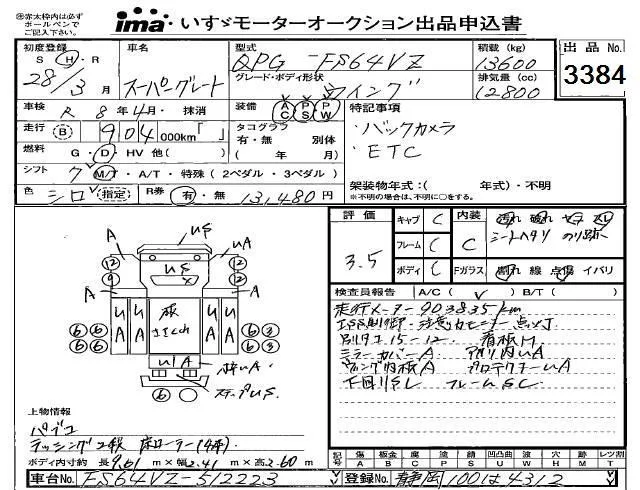 ※赤太枠内は必ず
ボールペンで
ご記入下さい。
ima いすゞモーターオークション出品申込書
初度登録 S H・R 28/3月
車名 スーパーグレート
型式 QPG-FS64VZ
グレード・ボディ形状 ウイング
積載(kg) 13600
排気量(cc) 12800
出品No.
3384
車検 R 8年4月・抹消
装備 AC PS PW
特記事項
・バックカメラ
・ETC
走行 (B) 904 000km「 」
タコグラフ 有・無 別体 ( 年 月)
燃料 G・D・HV 他( )
シフト 7 M/T・A/T・特殊(2ペダル・3ペダル)
架装物年式:( 年式)・不明
※不明の場合は、不明に○をする。
色 シロ (指定)
R券 有・無 13,480円
評価 3.5
キャブ C
フレーム C
ボディ C
内装 C
汚れ 破れ
シートヘタリ のり跡
Fガラス 割れ 線 点傷 イバリ
検査員報告 A/C( ✓ ) B/T( )
走行メーター903835km
別タコ15-12 看板H
ミラーカバーA
ウイング内板A
下回りSL フレームSC
A US UA
A A
12 9 12 9
UA UA UA UA
板
ステップUS
6 6 6 6 6 3 6 3
6
上物情報
パブコ
ラッシング2段 床ローラー(4本)
ボディ内寸約 長9.61m×幅2.41m×高2.60m
記号 傷A 板金B 腐C 塗P 錆S 凹凸U 凹W 穴H 歪M レツ割T
車台No. FS64VZ-512223
登録No. 静岡100は4312